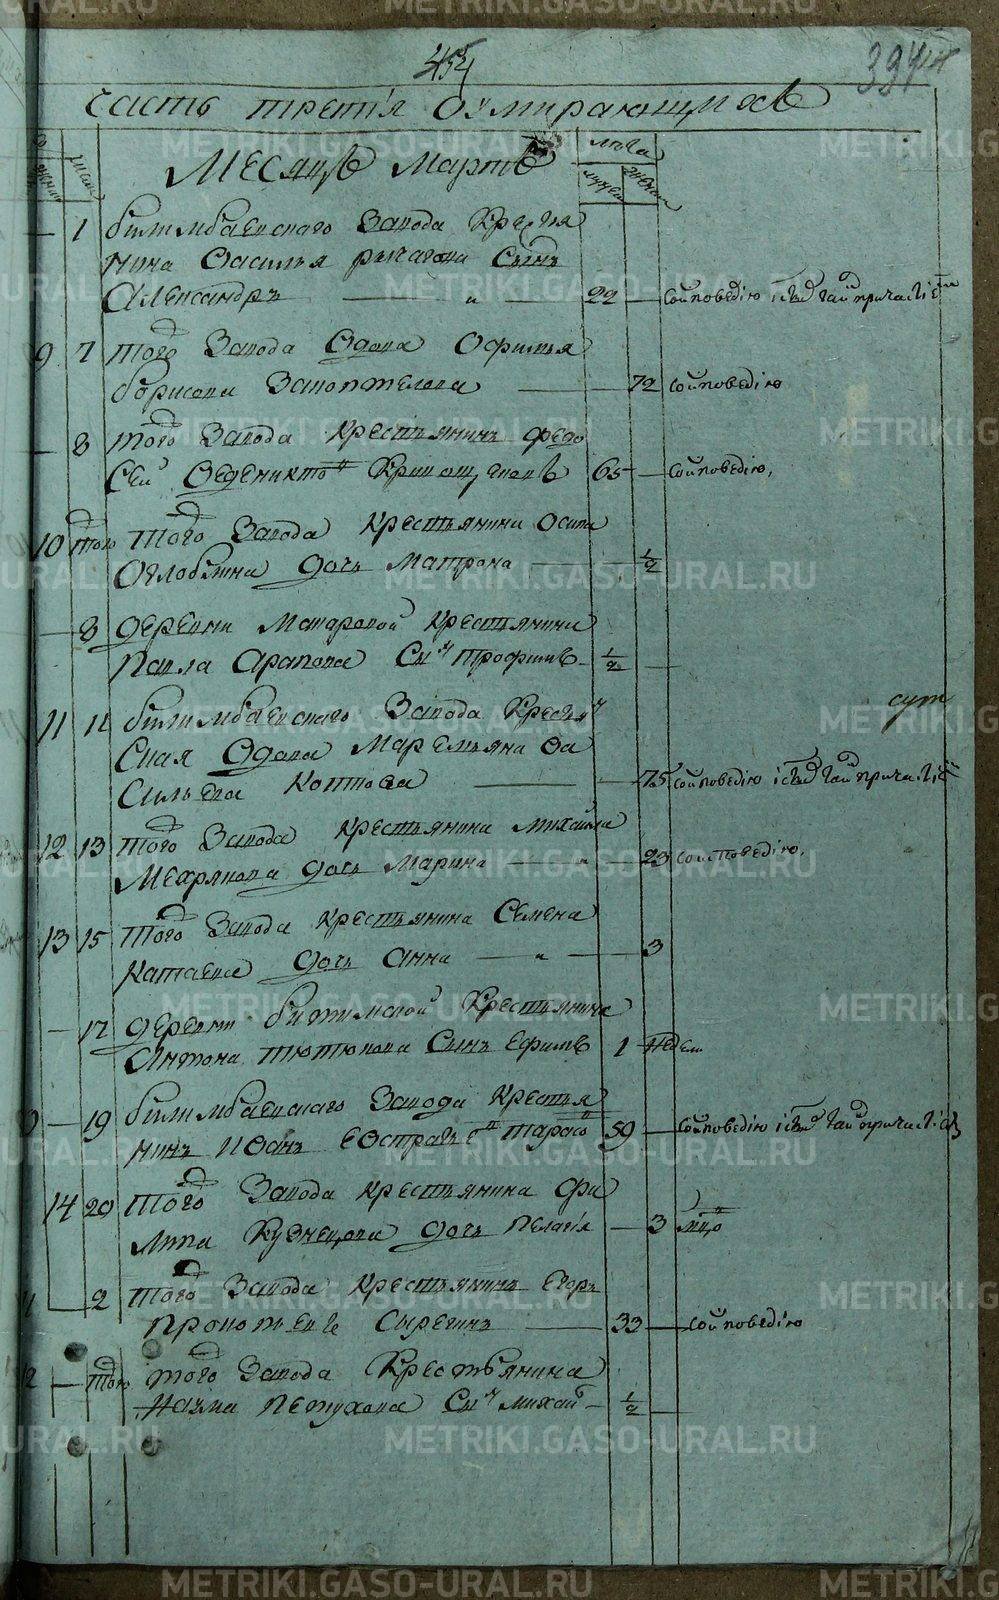 454
394
Часть третiя Оумирающихъ
Месяцъ Мартъ
лѣта
числа
мужеск
женск
1 билимбаевскаго Завода Крестья
нина Василья рычагова Сынъ
Александръ 22 соисповедiю i стд тай причастiем
9 7 того Завода Вдова Офимья
борисова Запоптелова 72 соисповедiю
8 того Завода Крестьянинъ федо
сей Веденикто
65 соисповедiю
10 того того Завода Крестьянина Осипа
Оглоблина дочь Матрона 1/2
8 деревни Макаровой Крестьянина
Павла Арапова Сынъ трофимъ 1/2
11 11 билимбаевскаго Завода Крестьян
ская Вдова Маремьяна Ва
сильева Коптева 75 соисповедiю i стд тай причастiем
сут
12 13 того Завода Крестьянина михайла
Мехрякова дочь Марина 23 соисповедiю
13 15 того Завода Крестьянина Семена
Катаева дочь Анна 3
17 деревни битимской Крестьянина
Антона тютюкова Сынъ Ефимъ 1 недел
19 билимбаевскаго Завода Крестья
нинъ Иоанъ Еострате тарасо 59 соисповедiю i стд тай причастiем
14 20 того Завода Крестьянина фи
липа Кузнецова дочь Пелагiя 3 мцо
2 того Завода Крестьянинъ Егоръ
Прокопьевъ Сырегинъ 33 соисповедiю
того того Завода Крестьянина
Наума Петухова Сынъ михай 1/2
METRIKI.GASO-URAL.RU